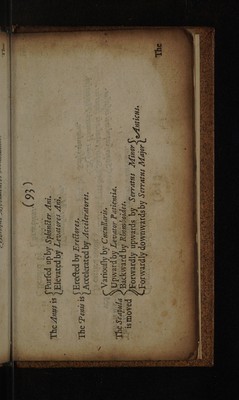 ( 93 )
The Anus is { Pursed up by Sphincter Ani.
Elevated by Levatores Ani.
The Penis is { Erected by Erectores.
Accelerated by Acceleratores.
The Scapula is moved { Variously by Cucullaris.
Upward by Levator Patientia.
Backward by Rhomboides.
Forwardly upwards by Serratus Minor } Anticus.
Forwardly downwards by Serratus Major
The